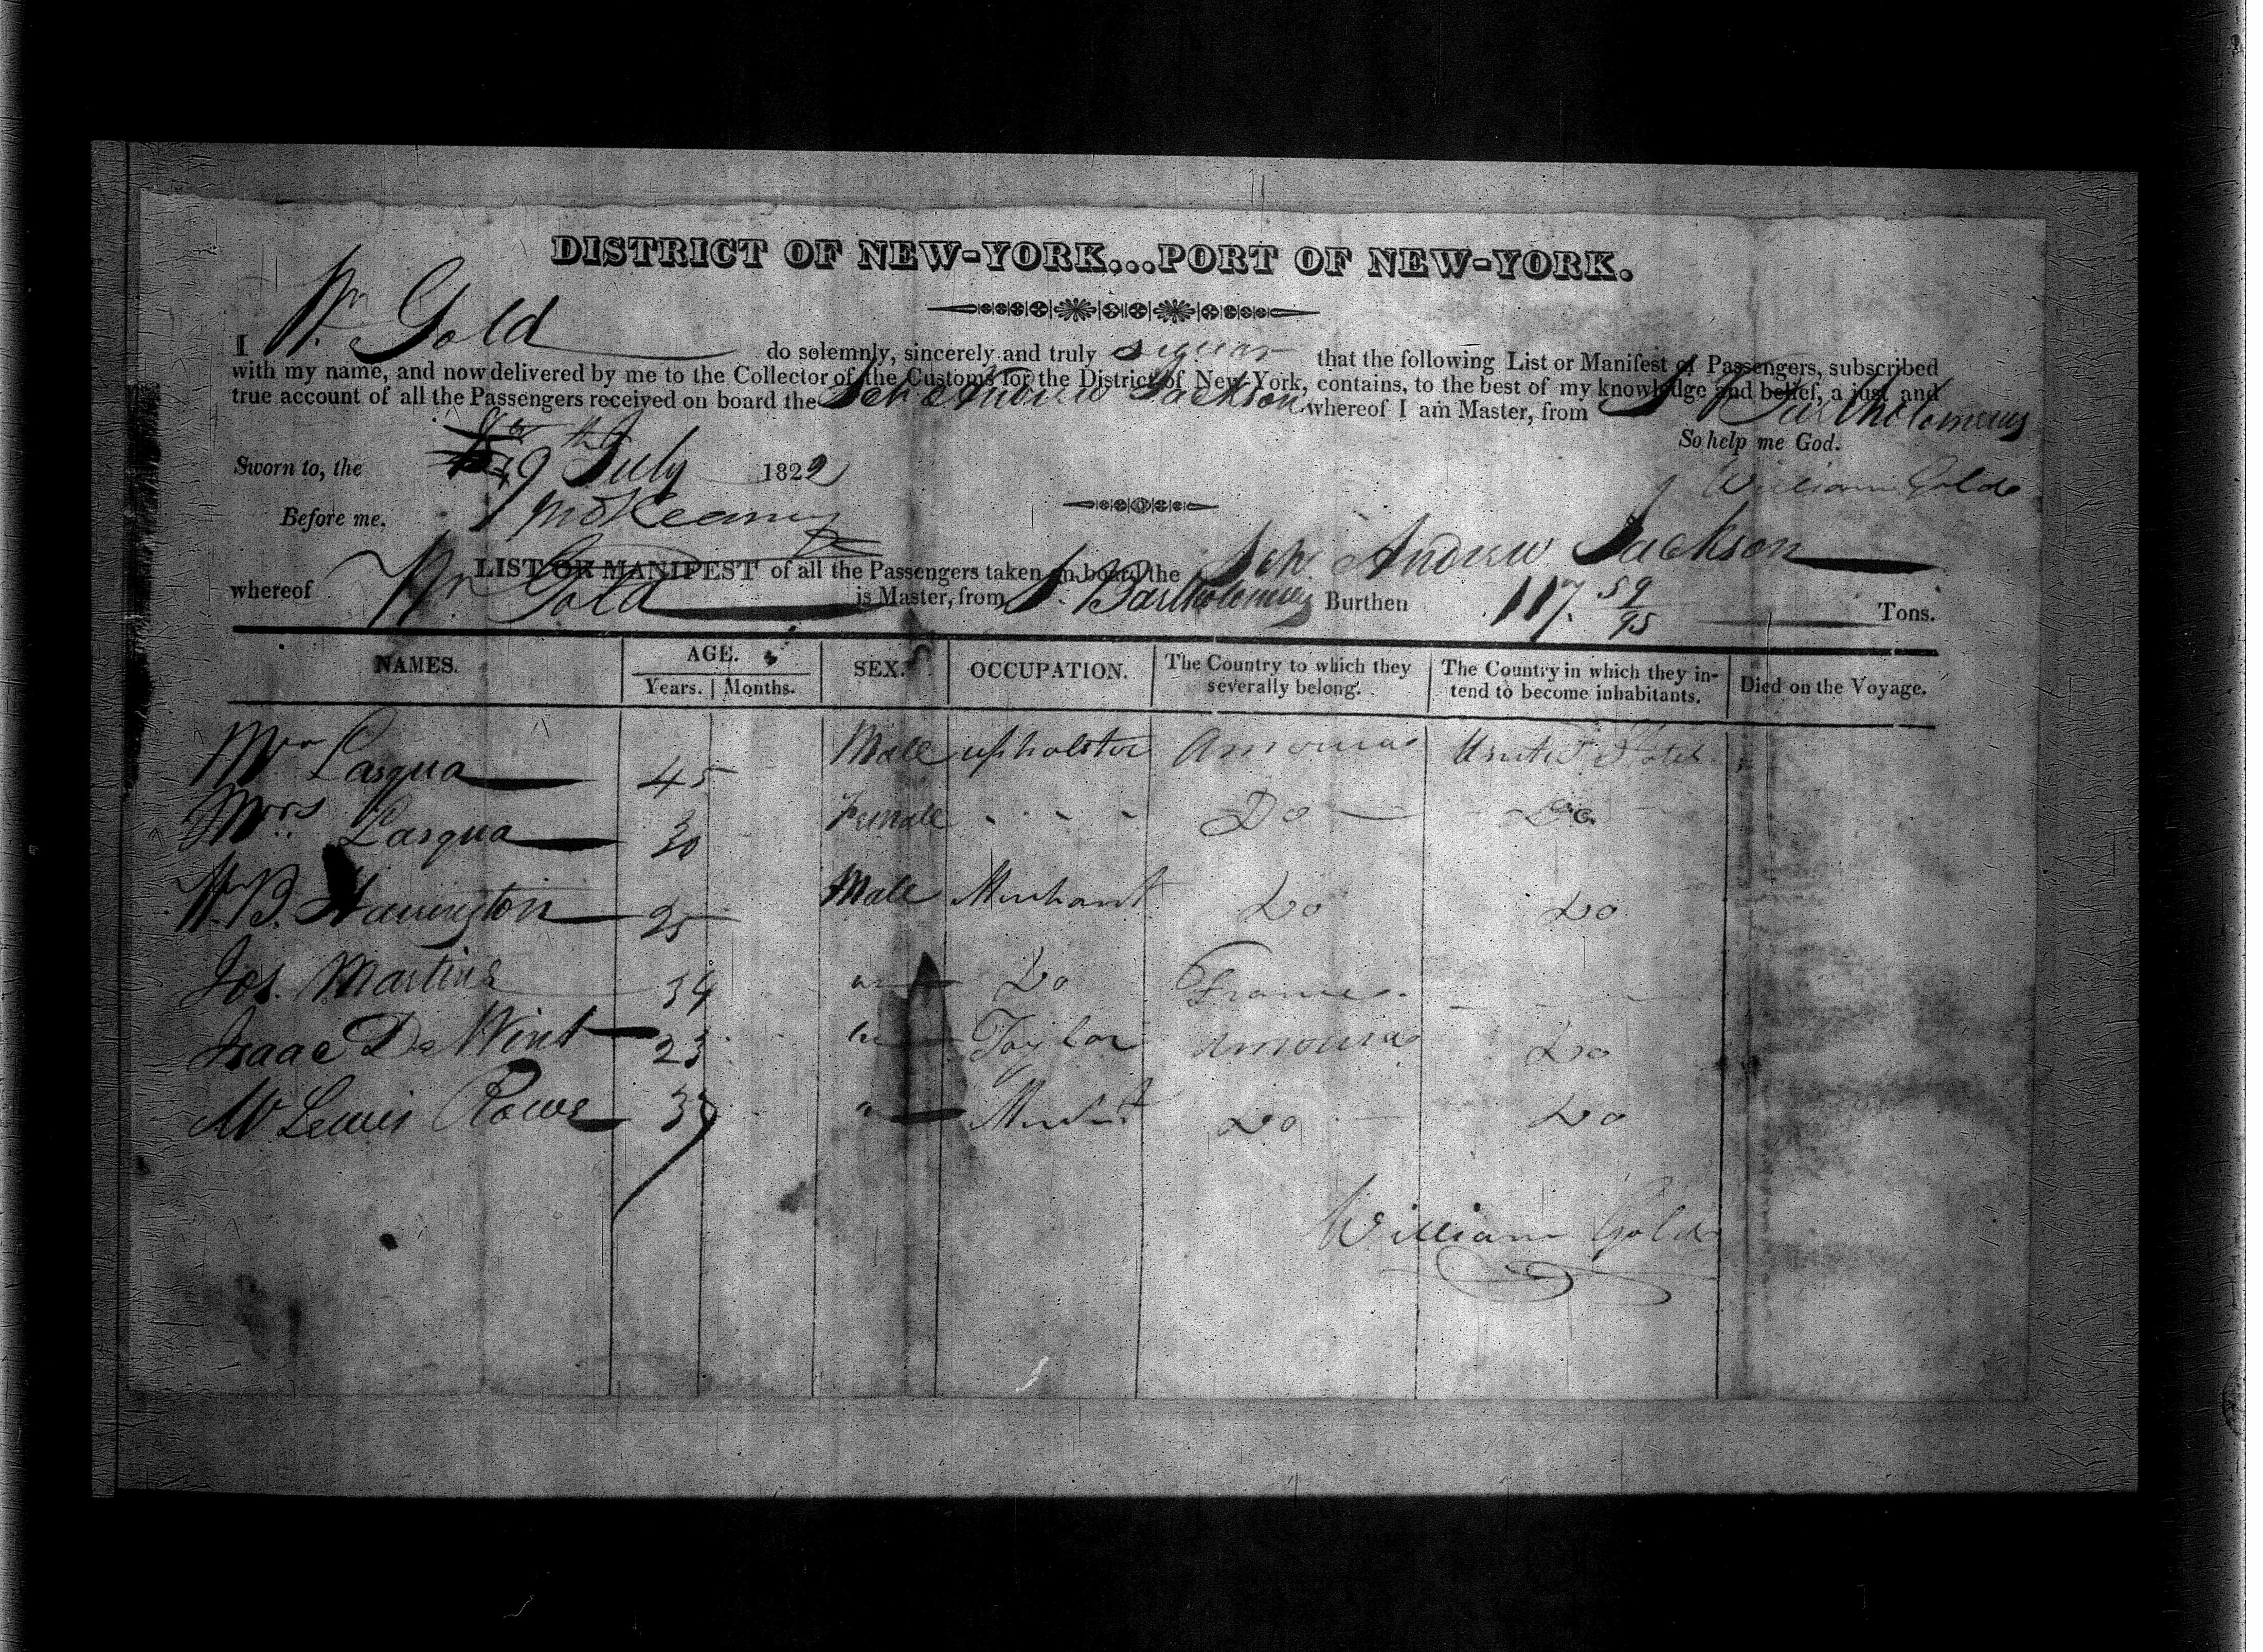 DISTRICT OF NEW-YORK...PORT OF NEW-YORK.
I Wm Gold do solemnly, sincerely and truly swear that the following List or Manifest of Passengers, subscribed
with my name, and now delivered by me to the Collector of the Customs for the District of New-York, contains, to the best of my knowledge and belief, a just and
true account of all the Passengers received on board the Schr Andrew Jackson whereof I am Master, from St Bartholomews
So help me God.
Sworn to, the 9th July 1822
William Gold
Before me,
LIST OR MANIFEST of all the Passengers taken on board the Schr Andrew Jackson
whereof Wm Gold is Master, from St. Bartholomews Burthen 117 59/95 Tons.
NAMES. AGE. SEX. OCCUPATION. The Country to which they severally belong. The Country in which they intend to become inhabitants. Died on the Voyage.
Years. Months.
Mr Lasqua 45 Male upholster America United States
Mrs Lasqua 30 Female Do Do
Wm B. Harrington 25 Male Merchant Do Do
Jos. Martins 34 " Do France
Isaac De Wint 23 " Taylor America Do
Mr Lewis Rowe 37 " Do Do
William Gold